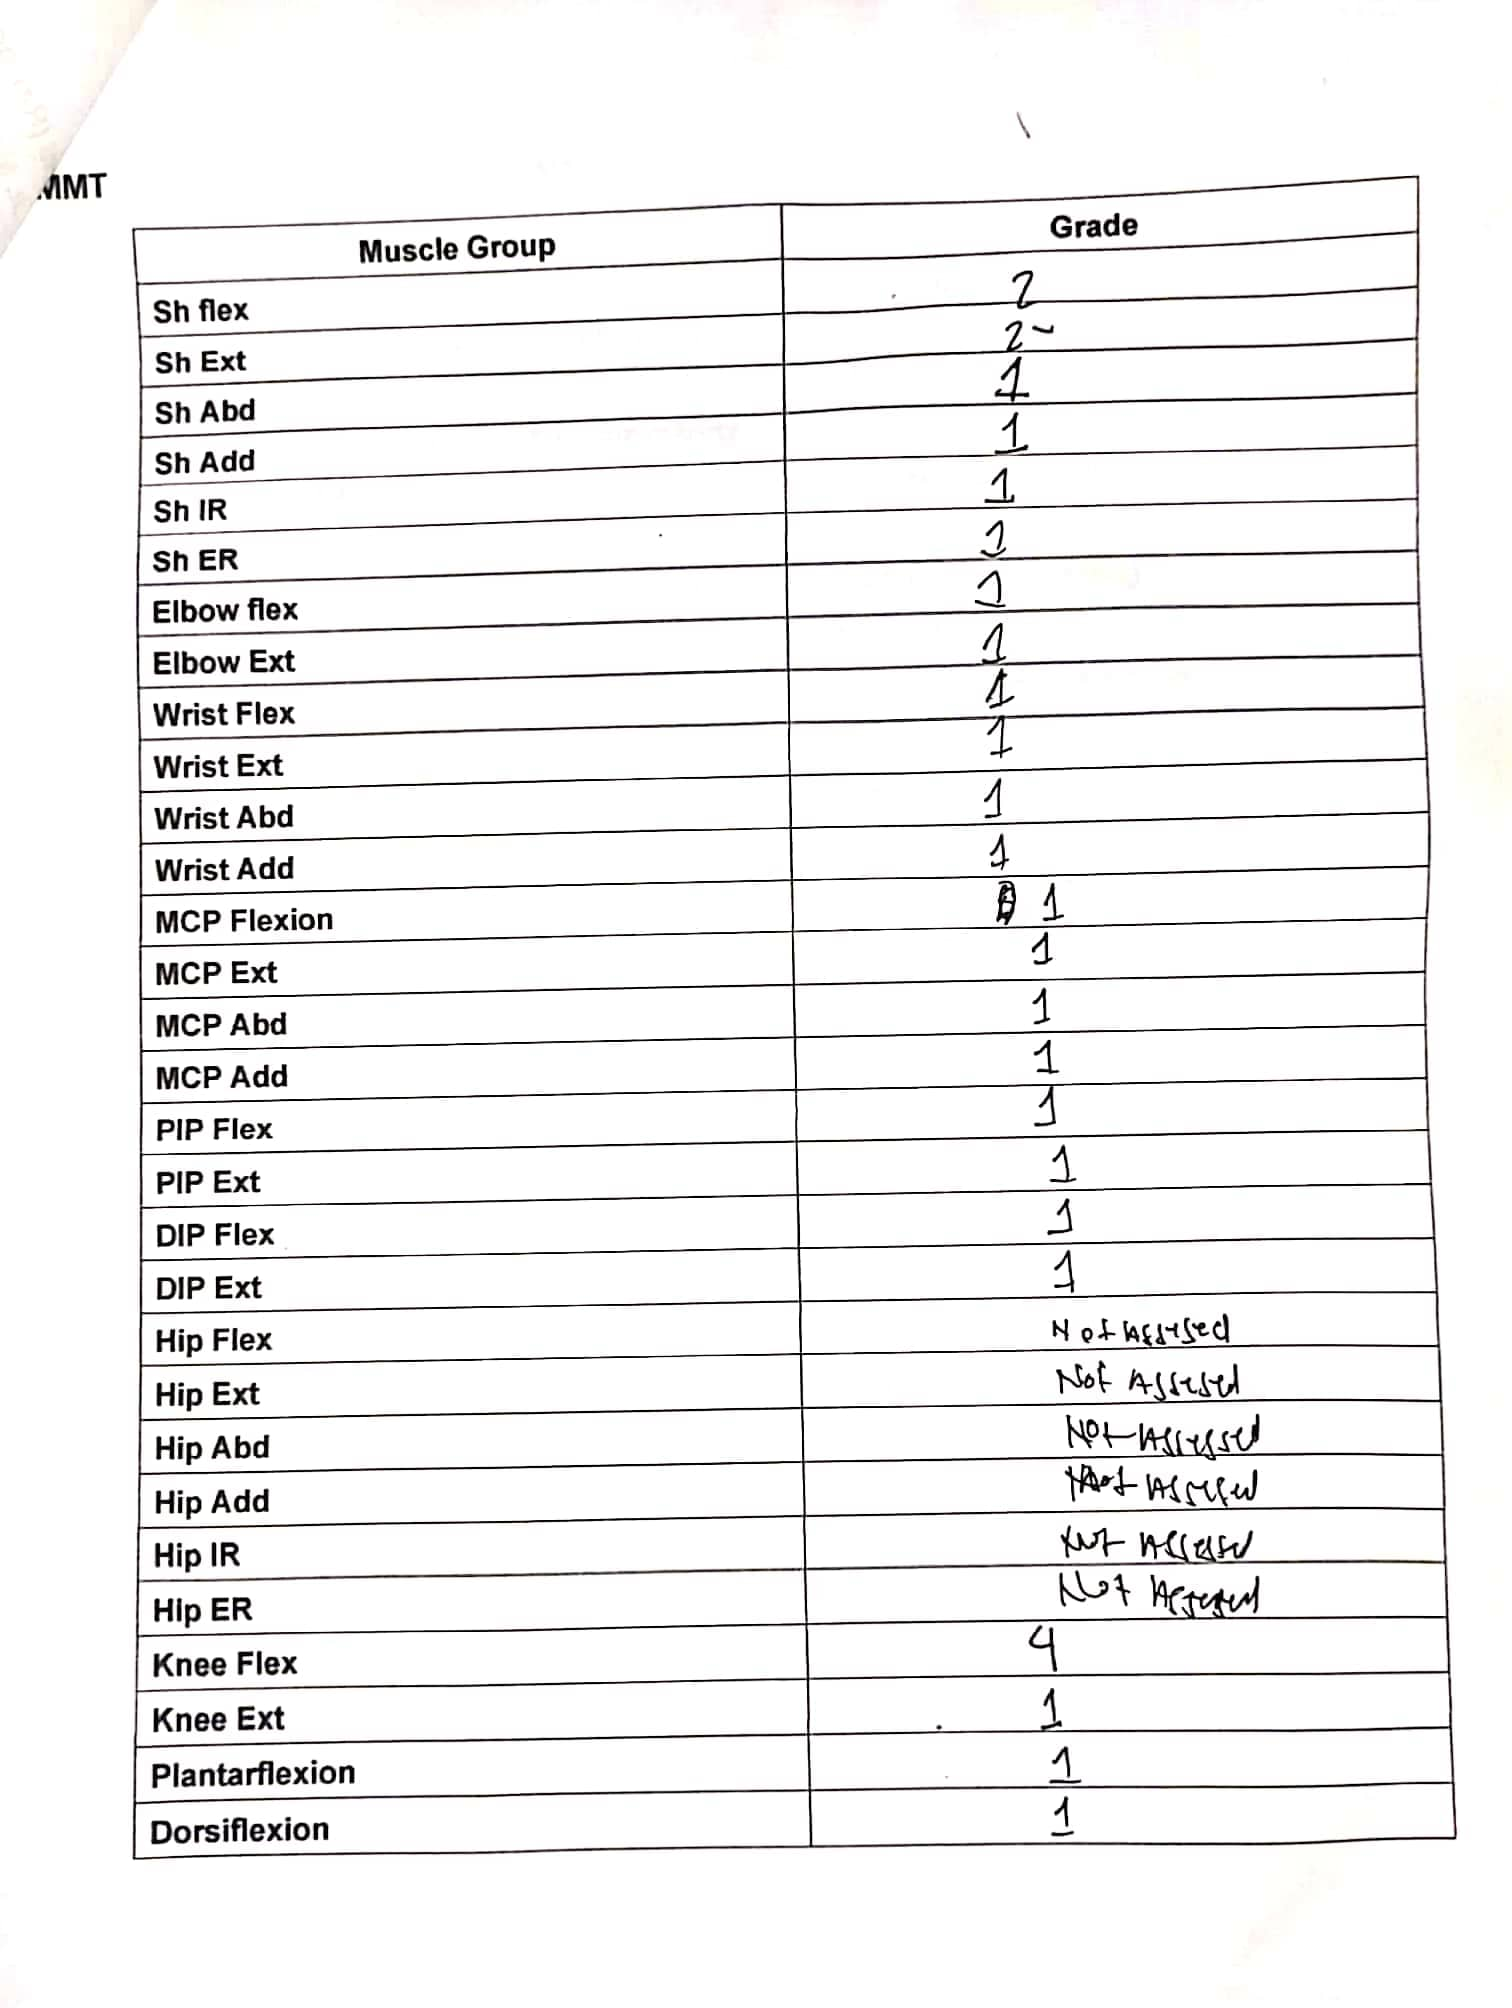 MMT
Muscle Group Grade
Sh flex 2
Sh Ext 2-
Sh Abd 1
Sh Add 1
Sh IR 1
Sh ER 1
Elbow flex 1
Elbow Ext 1
Wrist Flex 1
Wrist Ext 1
Wrist Abd 1
Wrist Add 1
MCP Flexion 1
MCP Ext 1
MCP Abd 1
MCP Add 1
PIP Flex 1
PIP Ext 1
DIP Flex 1
DIP Ext 1
Hip Flex Not Assesed
Hip Ext Not Assesed
Hip Abd Not Assessed
Hip Add Not Assesed
Hip IR Not Assesed
Hip ER Not Assesed
Knee Flex 4
Knee Ext 1
Plantarflexion 1
Dorsiflexion 1